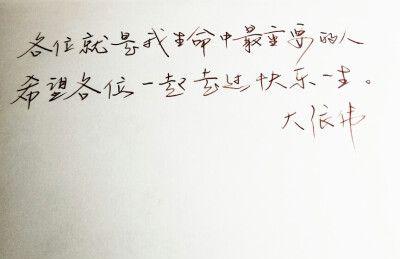 各位就是我生命中最重要的人
希望各位一起去过快乐一生。
大依伟